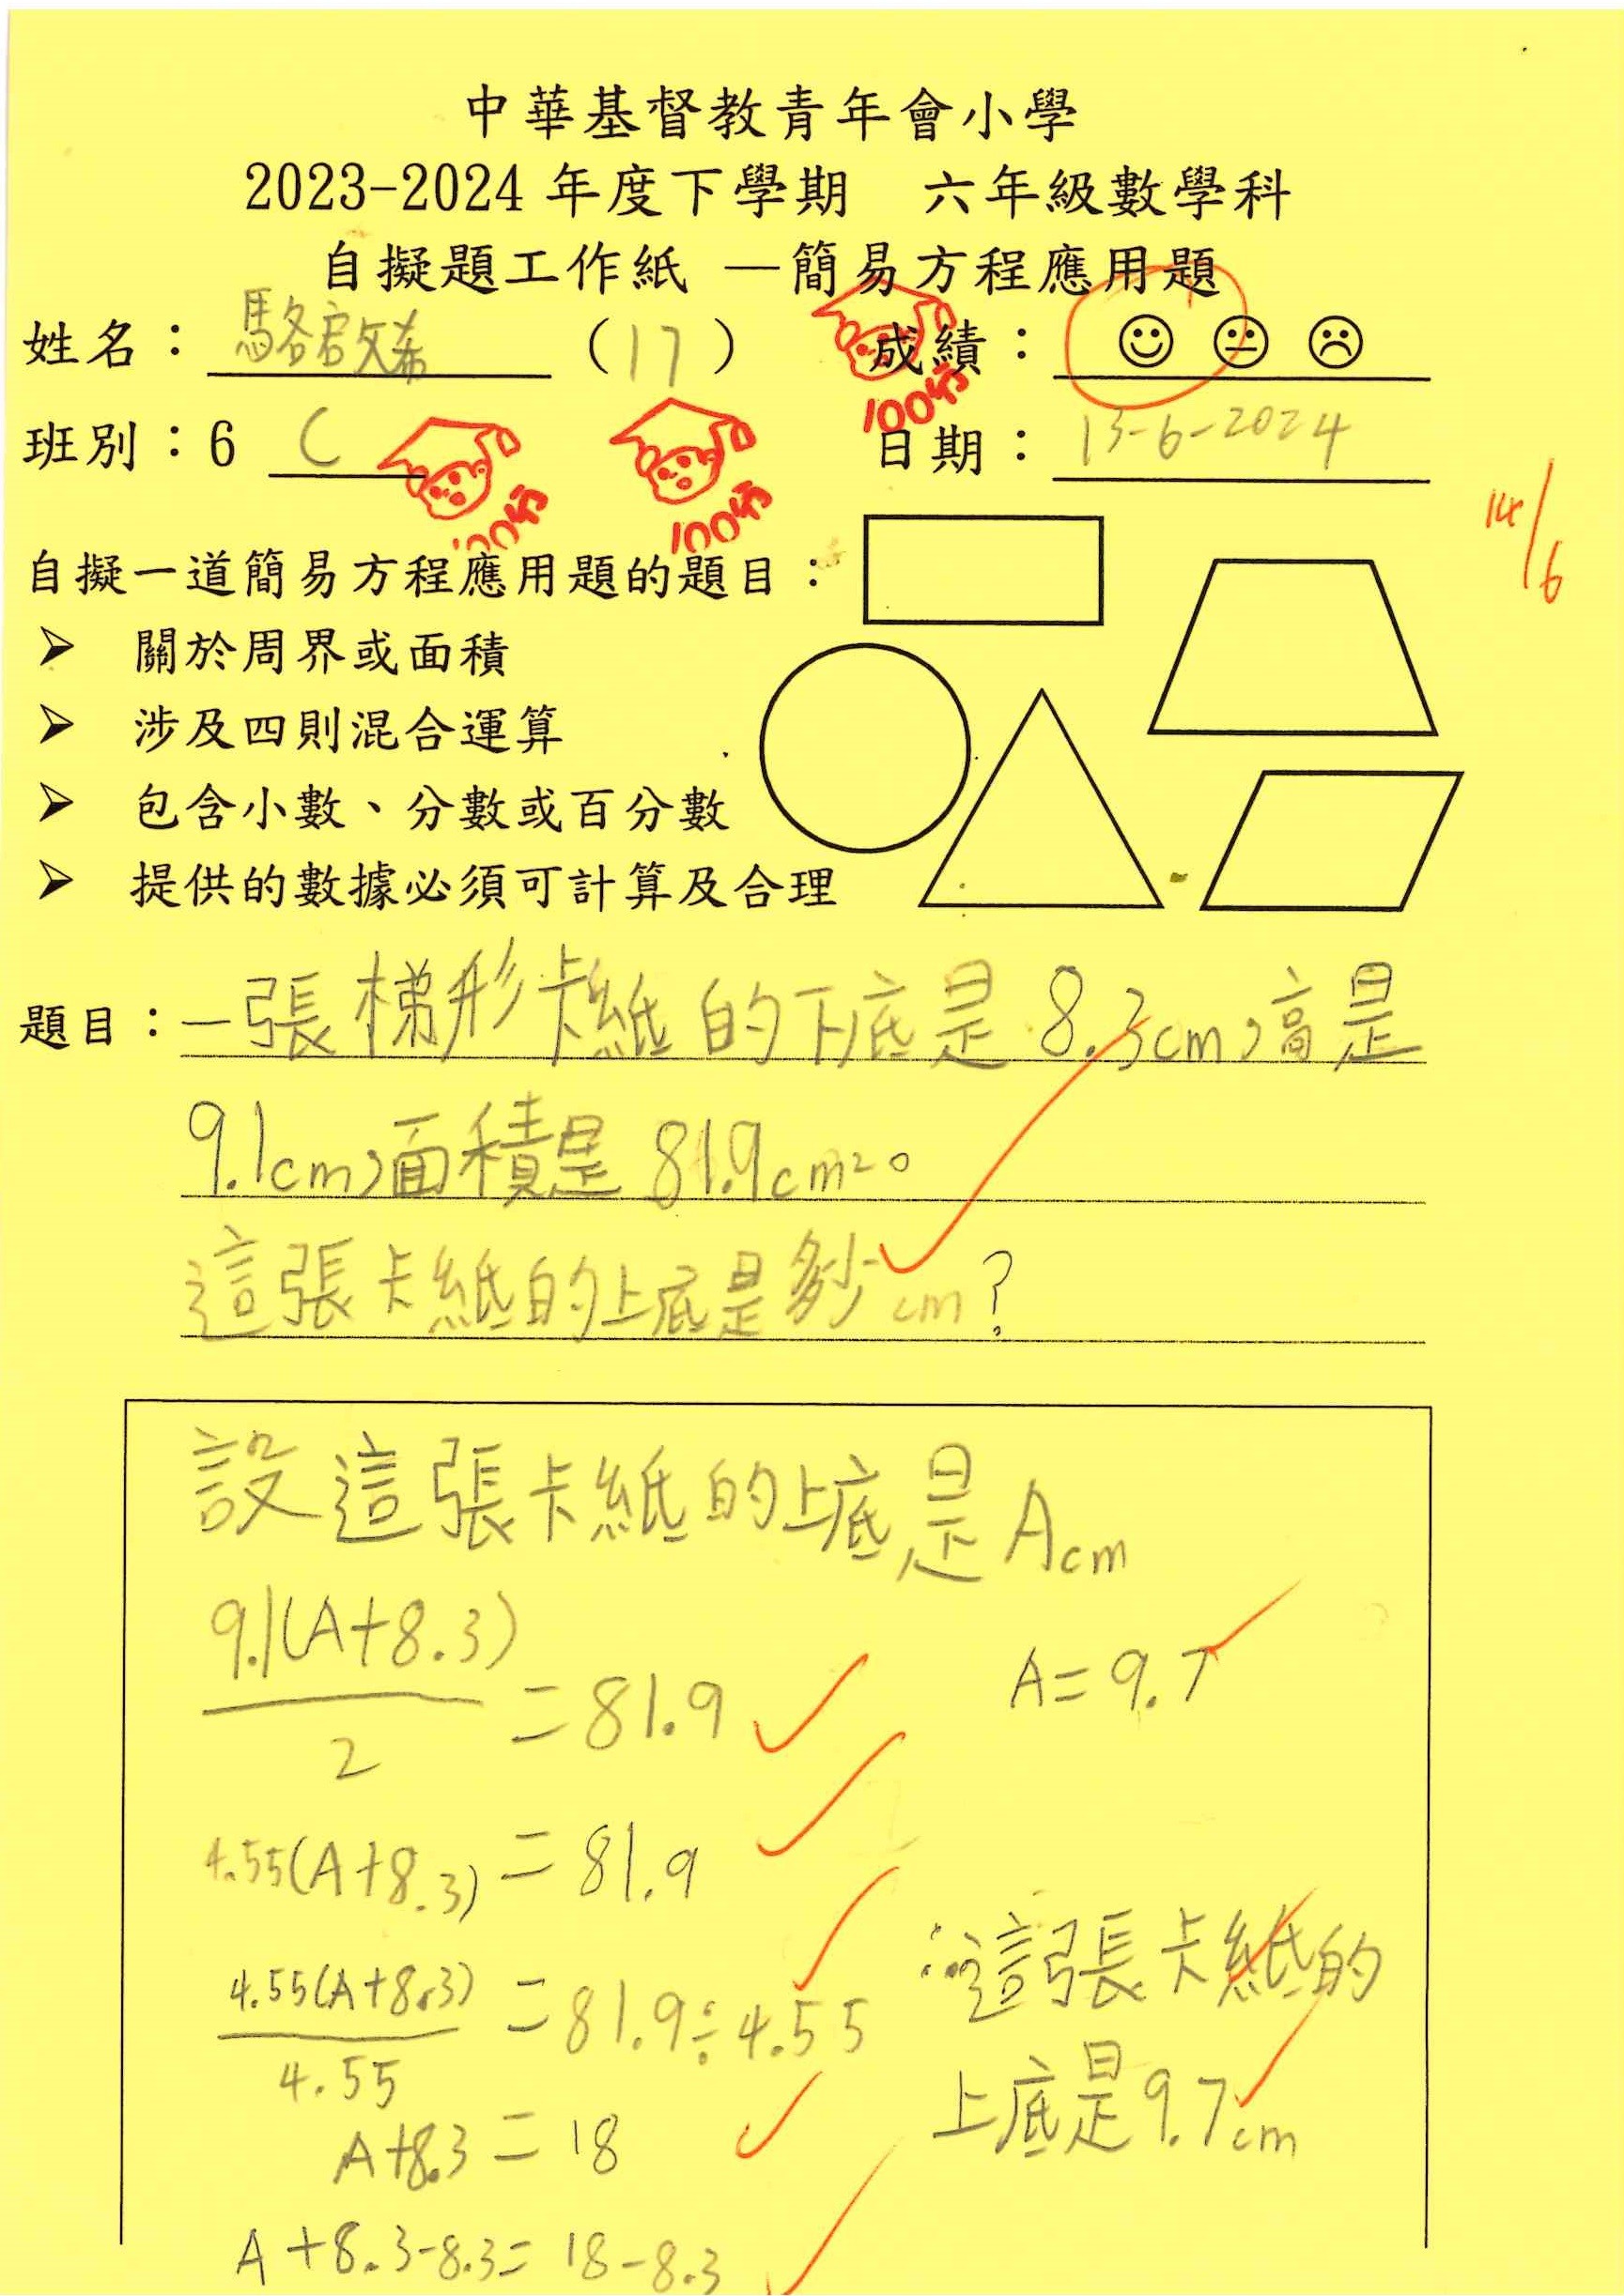 中華基督教青年會小學
2023-2024 年度下學期 六年級數學科
自擬題工作紙 — 簡易方程應用題
姓名： 駱啟希 (17) 成績：
班別：6 C 日期： 13-6-2024
100分 100分 100分
14/6
自擬一道簡易方程應用題的題目：
➢ 關於周界或面積
➢ 涉及四則混合運算
➢ 包含小數、分數或百分數
➢ 提供的數據必須可計算及合理
題目：一張梯形卡紙的下底是8.3cm，高是
9.1cm，面積是81.9cm²。
這張卡紙的上底是多少cm？
設這張卡紙的上底是Acm
9.1(A+8.3)/2 = 81.9
4.55(A+8.3) = 81.9
4.55(A+8.3)/4.55 = 81.9÷4.55
A+8.3 = 18
A+8.3-8.3 = 18-8.3
A = 9.7
∴這張卡紙的
上底是9.7cm